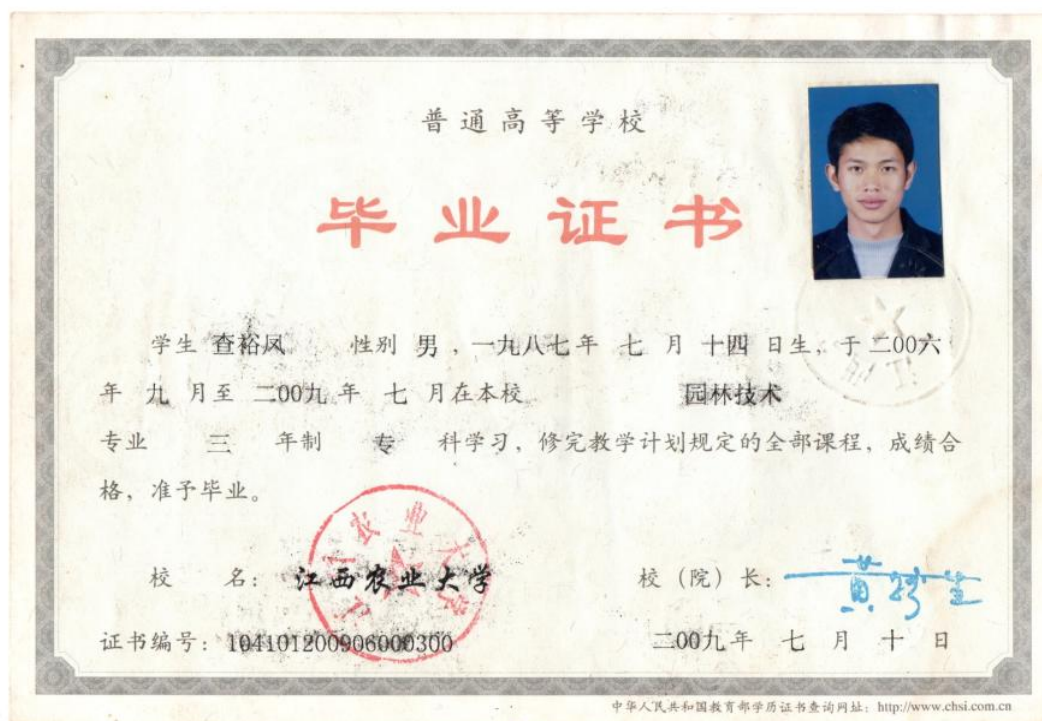 普通高等学校
毕业证书
学生 查裕凤 性别 男，一九八七年 七 月 十四 日生，于二00六
年 九 月至 二00九 年 七 月在本校 园林技术
专业 三 年制 专 科学习，修完教学计划规定的全部课程，成绩合
格，准予毕业。
校 名：江西农业大学 校（院）长：
证书编号：104101200906000300 二00九年 七 月 十 日
中华人民共和国教育部学历证书查询网址：http://www.chsi.com.cn